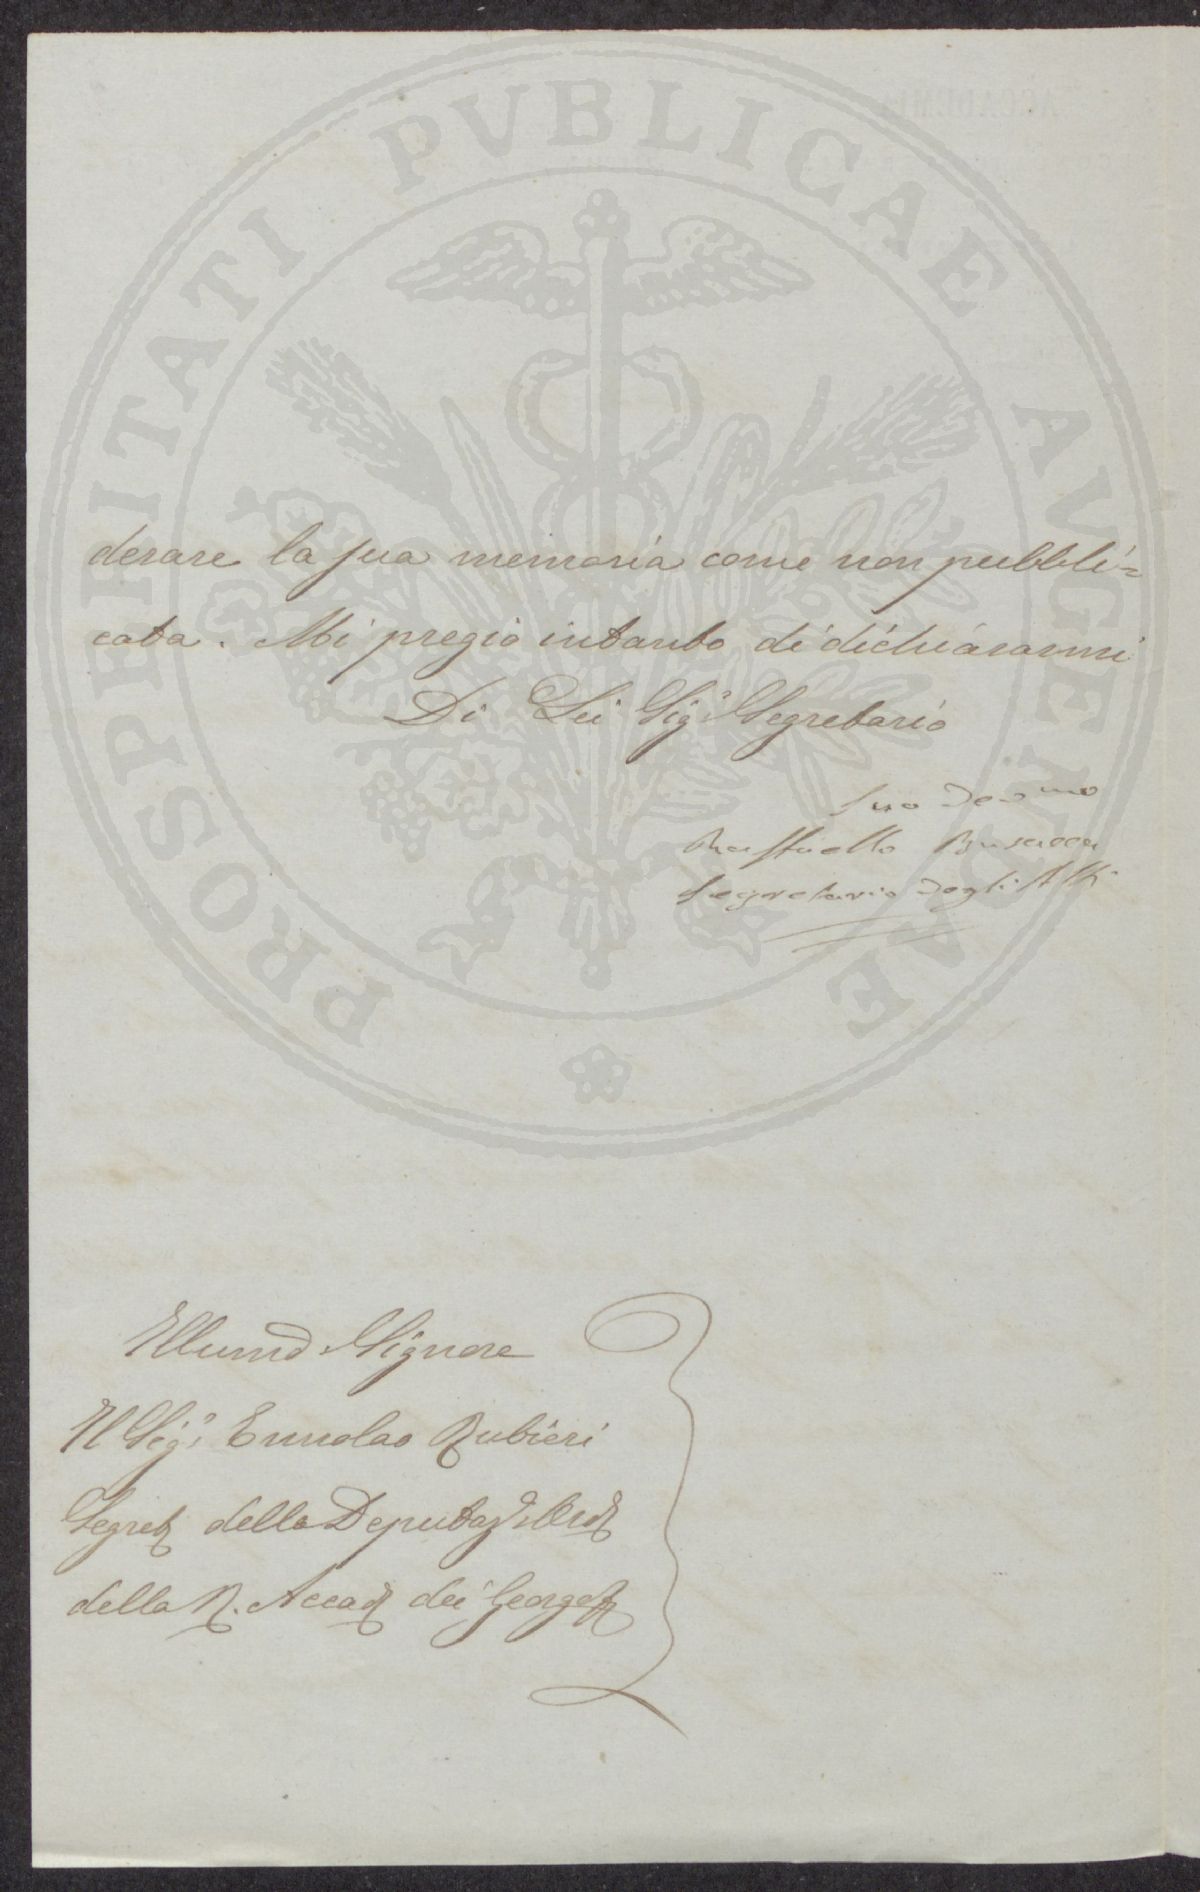 PROSPERITATI PVBLICAE AVGENDAE
derare la sua memoria come non pubbli=
cata. Mi pregio intanto di dichiararmi
Di Lei Sig.r Segretario
Suo Dev.mo
Raffaello Busacca
Segretario degli Atti
Illumo Signore
Il Sig.r Ermolao Rubieri
Segret della Deputaz
della R. Accad dei Georgof